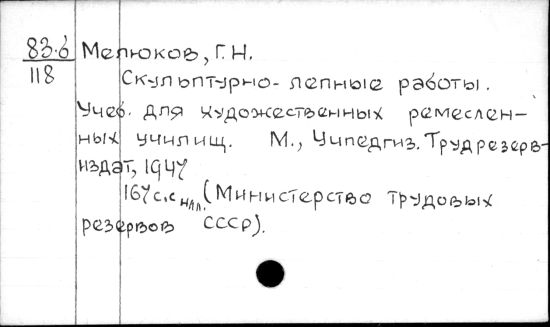 83.6 Мелюков, Г.Н.
118
Скульптурно-лепные работы.
Учеб. для художественных ремеслен-
ных училищ. М., Учпедгиз. Трудрезерв-
издат, 1947
167 с. с илл. (Министерство трудовых
резервов СССР).